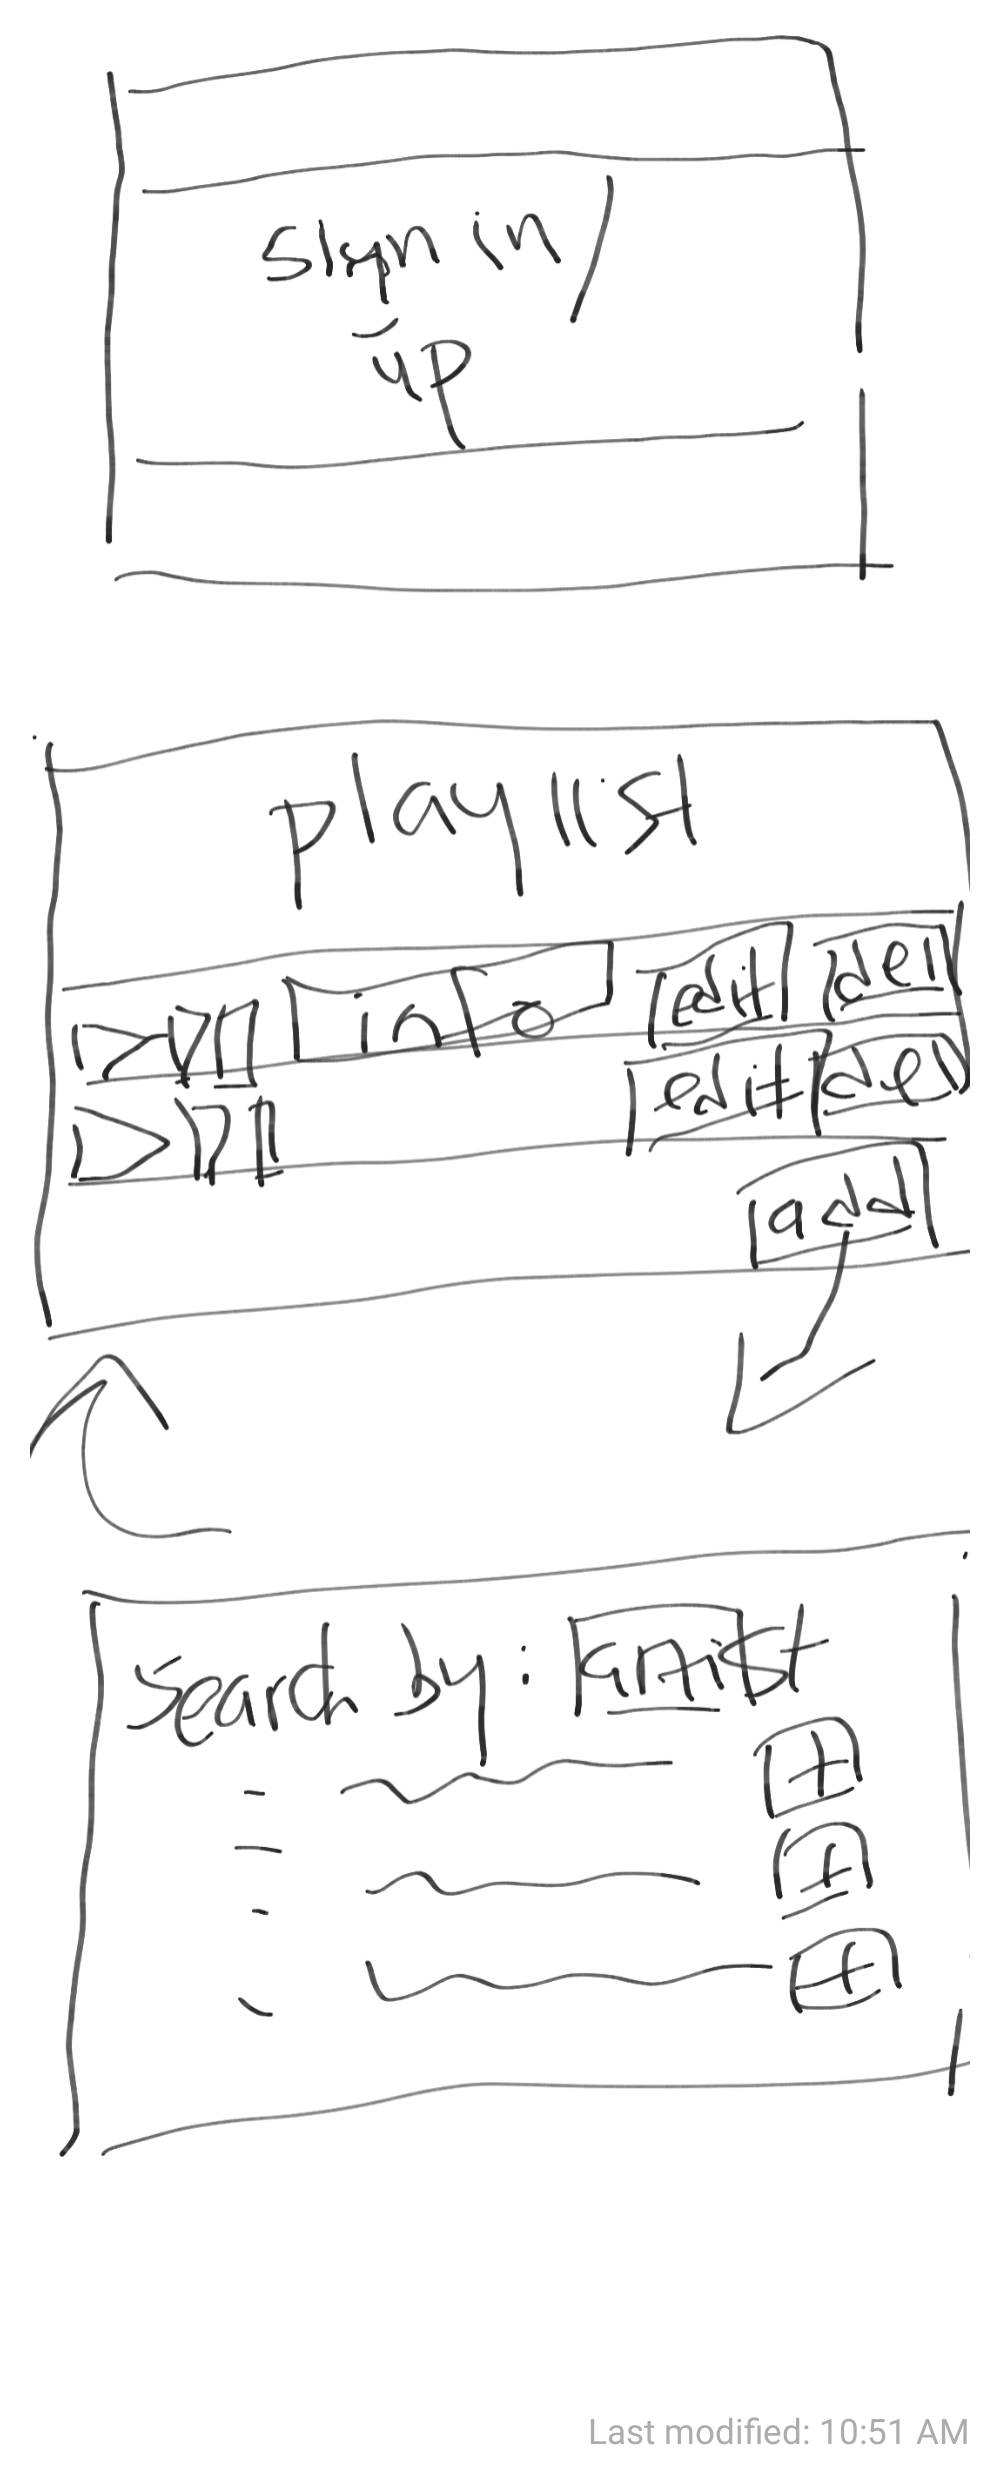 sign in /
up
playlist
info edit del
edit del
add
search by: artist
+
+
+
Last modified: 10:51 AM